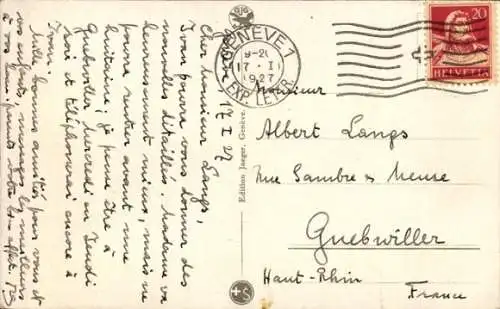 Genève 17 I 27
Cher monsieur Langs,
Ivan pourra vous donner des
nouvelles détaillés. Madame va
heureusement mieux, mais ne
pourra rentrer avant une
huitaine; je pense être à
Guebwiller mercredi ou Jeudi
soir et téléphonerai encore à
Ivan.
mille bonnes amitiés pour vous et
vos enfants, messages les meilleurs
à vos
GENÈVE 1
17 · I
1927
EXP. LETTR.
20
HELVETIA
Monsieur
Albert Langs
Rue Sambre & Meuse
Guebwiller
Haut-Rhin
France
Edition Jaeger, Genève.